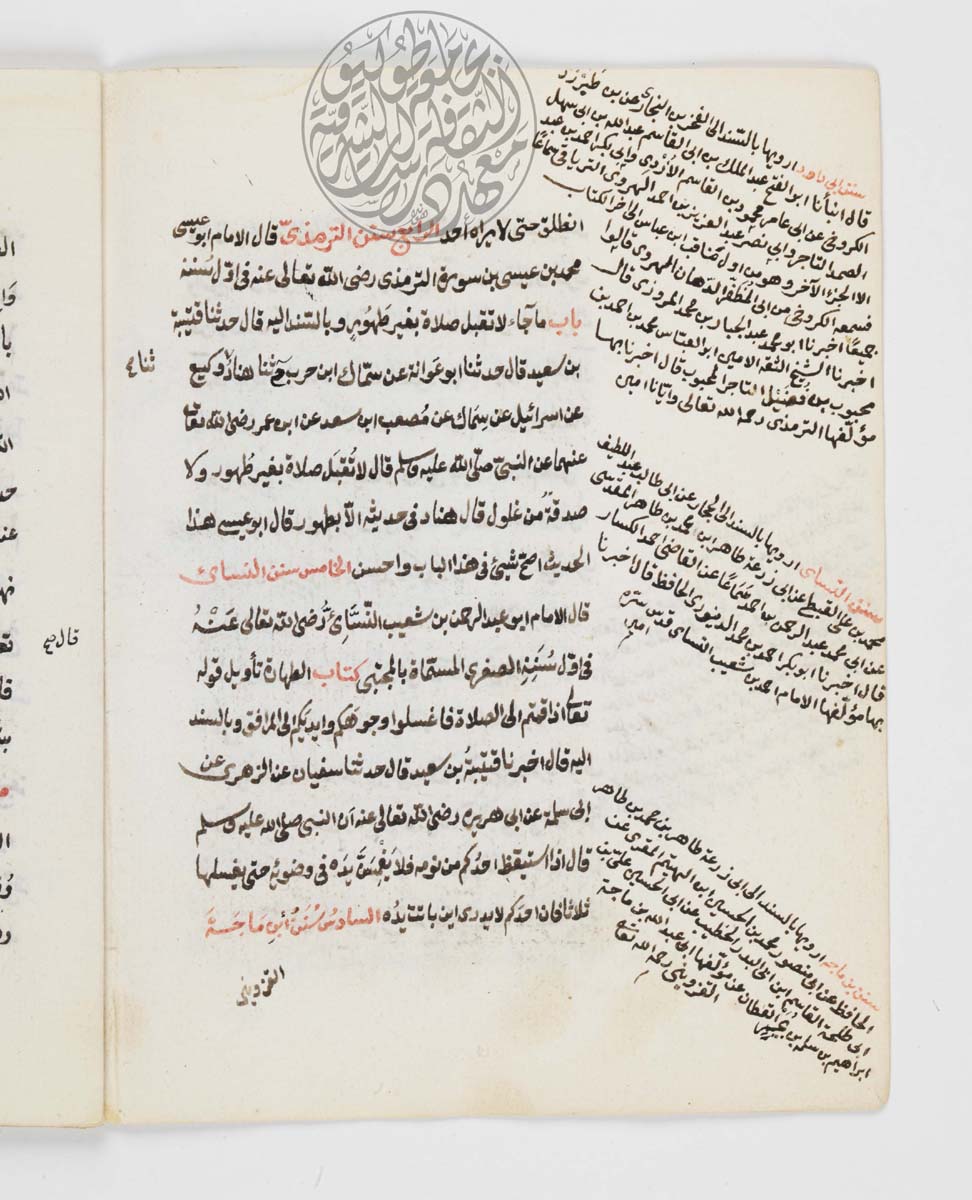 انطلق حتى لا يراه احد الرابع سنن الترمذي قال الامام ابو عيسى
محمد بن عيسى بن سورة الترمذي رضى الله تعالى عنه فى اوّل سُننه
باب ما جآء لا تقبل صلاة بغير طَهُورٍ وبالسند اليه قال حدثنا قتيبة
بن سعيد قال حدثنا ابو عَوانة عن سمّاك ابن حرب ح ثنا هناد وكيع
ثنا ح
عن اسرائيل عن سِمَاك عن مُصعب ابن سعد عن ابن عمر رضى الله تعا
عنهما عن النبىّ صلّى الله عليه وسلم قال لا تُقبَل صلاة بغير طُهور ولا
صدقةٌ من غلول قال هناد فى حديثه الاّ بطهور قال ابو عيسى هذا
الحديث اصحّ شيئ فى هذا الباب واحسن الخامس سنن النسائ
قال الامام ابو عبد الرحمن بن شعيب النَّسَائِىُّ رُضى الله تعالى عَنْهُ
فى اوّل سُنَنِهِ الصغرى المسمّاة بالمجتبى كتاب الطهارة تأويل قوله
تعالى اذا قمتم الى الصلاة فاغسلوا وجوهكم وايديكم الى المرافق وبالسند
اليه قال اخبرنا قتيبَة بن سعيد قال حدثنا سفيان عن الزهرى عن
ابى سلمة عن ابى هريره رضى الله تعالى عنه اَنّ النبى صلى الله عليه وسلم
قال اذا استيقظ احدُكم من نومه فلا يَغْمِسَنَّ يدَه فى وضوئه حتى يغسلها
ثلاثا فان احدكم لا يدرى اين باتت يدُه السادسُ سُنَنُ اَبى مَاجَهْ
القزوينى
سنن ابى داود ارويها بالسند الى الفخر بن البخارى عن بن طَبَرْزَد
قال انبأنا ابو الفتح عبد الملك بن ابى القاسم عبد الله بن ابى سهل
الكروخى عن ابى عامر محمود بن القاسم الأزدى وابى بكر احمد بن عبد
الصمد التاجر وابى نصر عبد العزيز بن احمد الهروى الترياقى سماعًا
الا الجزء الآخر وهو من اول مناقب ابن عباس الى اخر الكتاب
فسمعه الكروخى من ابى المُظَفّر الدّهان الهروى قالوا
جميعًا اخبرنا ابو محمد عبد الجبار بن محمد المروزى قال
اخبرنا الشيخ الثقة الامين ابو العباس محمد بن احمد بن
محبوب بن فُضَيل التاجر المحبوبى قال اخبرنا بها
مؤلّفها الترمذى رحمه الله تعالى وايّانا امين
سنن النسائ ارويها بالسند الى الحجار عن ابى طالب عبد اللطيف
محمد بن على القبيطى عن ابى زرعة طاهر ابن محمد بن طاهر المقدسى
عن ابى محمد عبد الرحمن بن احمد سَمَاعًا عن القاضى احمد الكسار
قال اخبرنا ابو بكر احمد بن محمد الدينورى الحافظ قال اخبرنا
بها مؤلّفها الامام احمد بن شعيب النسائ قدس سره
امين
سنن بن ماجه ارويها بالسند الى ابى زرعة طاهر بن محمد بن طاهر
الحافظ عن ابى منصور محمد بن الحسين ابن الهيثم المقرى عن
ابى طلحة القاسم ابن ابى البدر الخطيب عن ابى الحسين على بن
ابراهيم بن سلمة بن القطان عن مؤلّفها ابى عبد الله بن ماجة
القزوينى رحمه الله تعا
قال صح